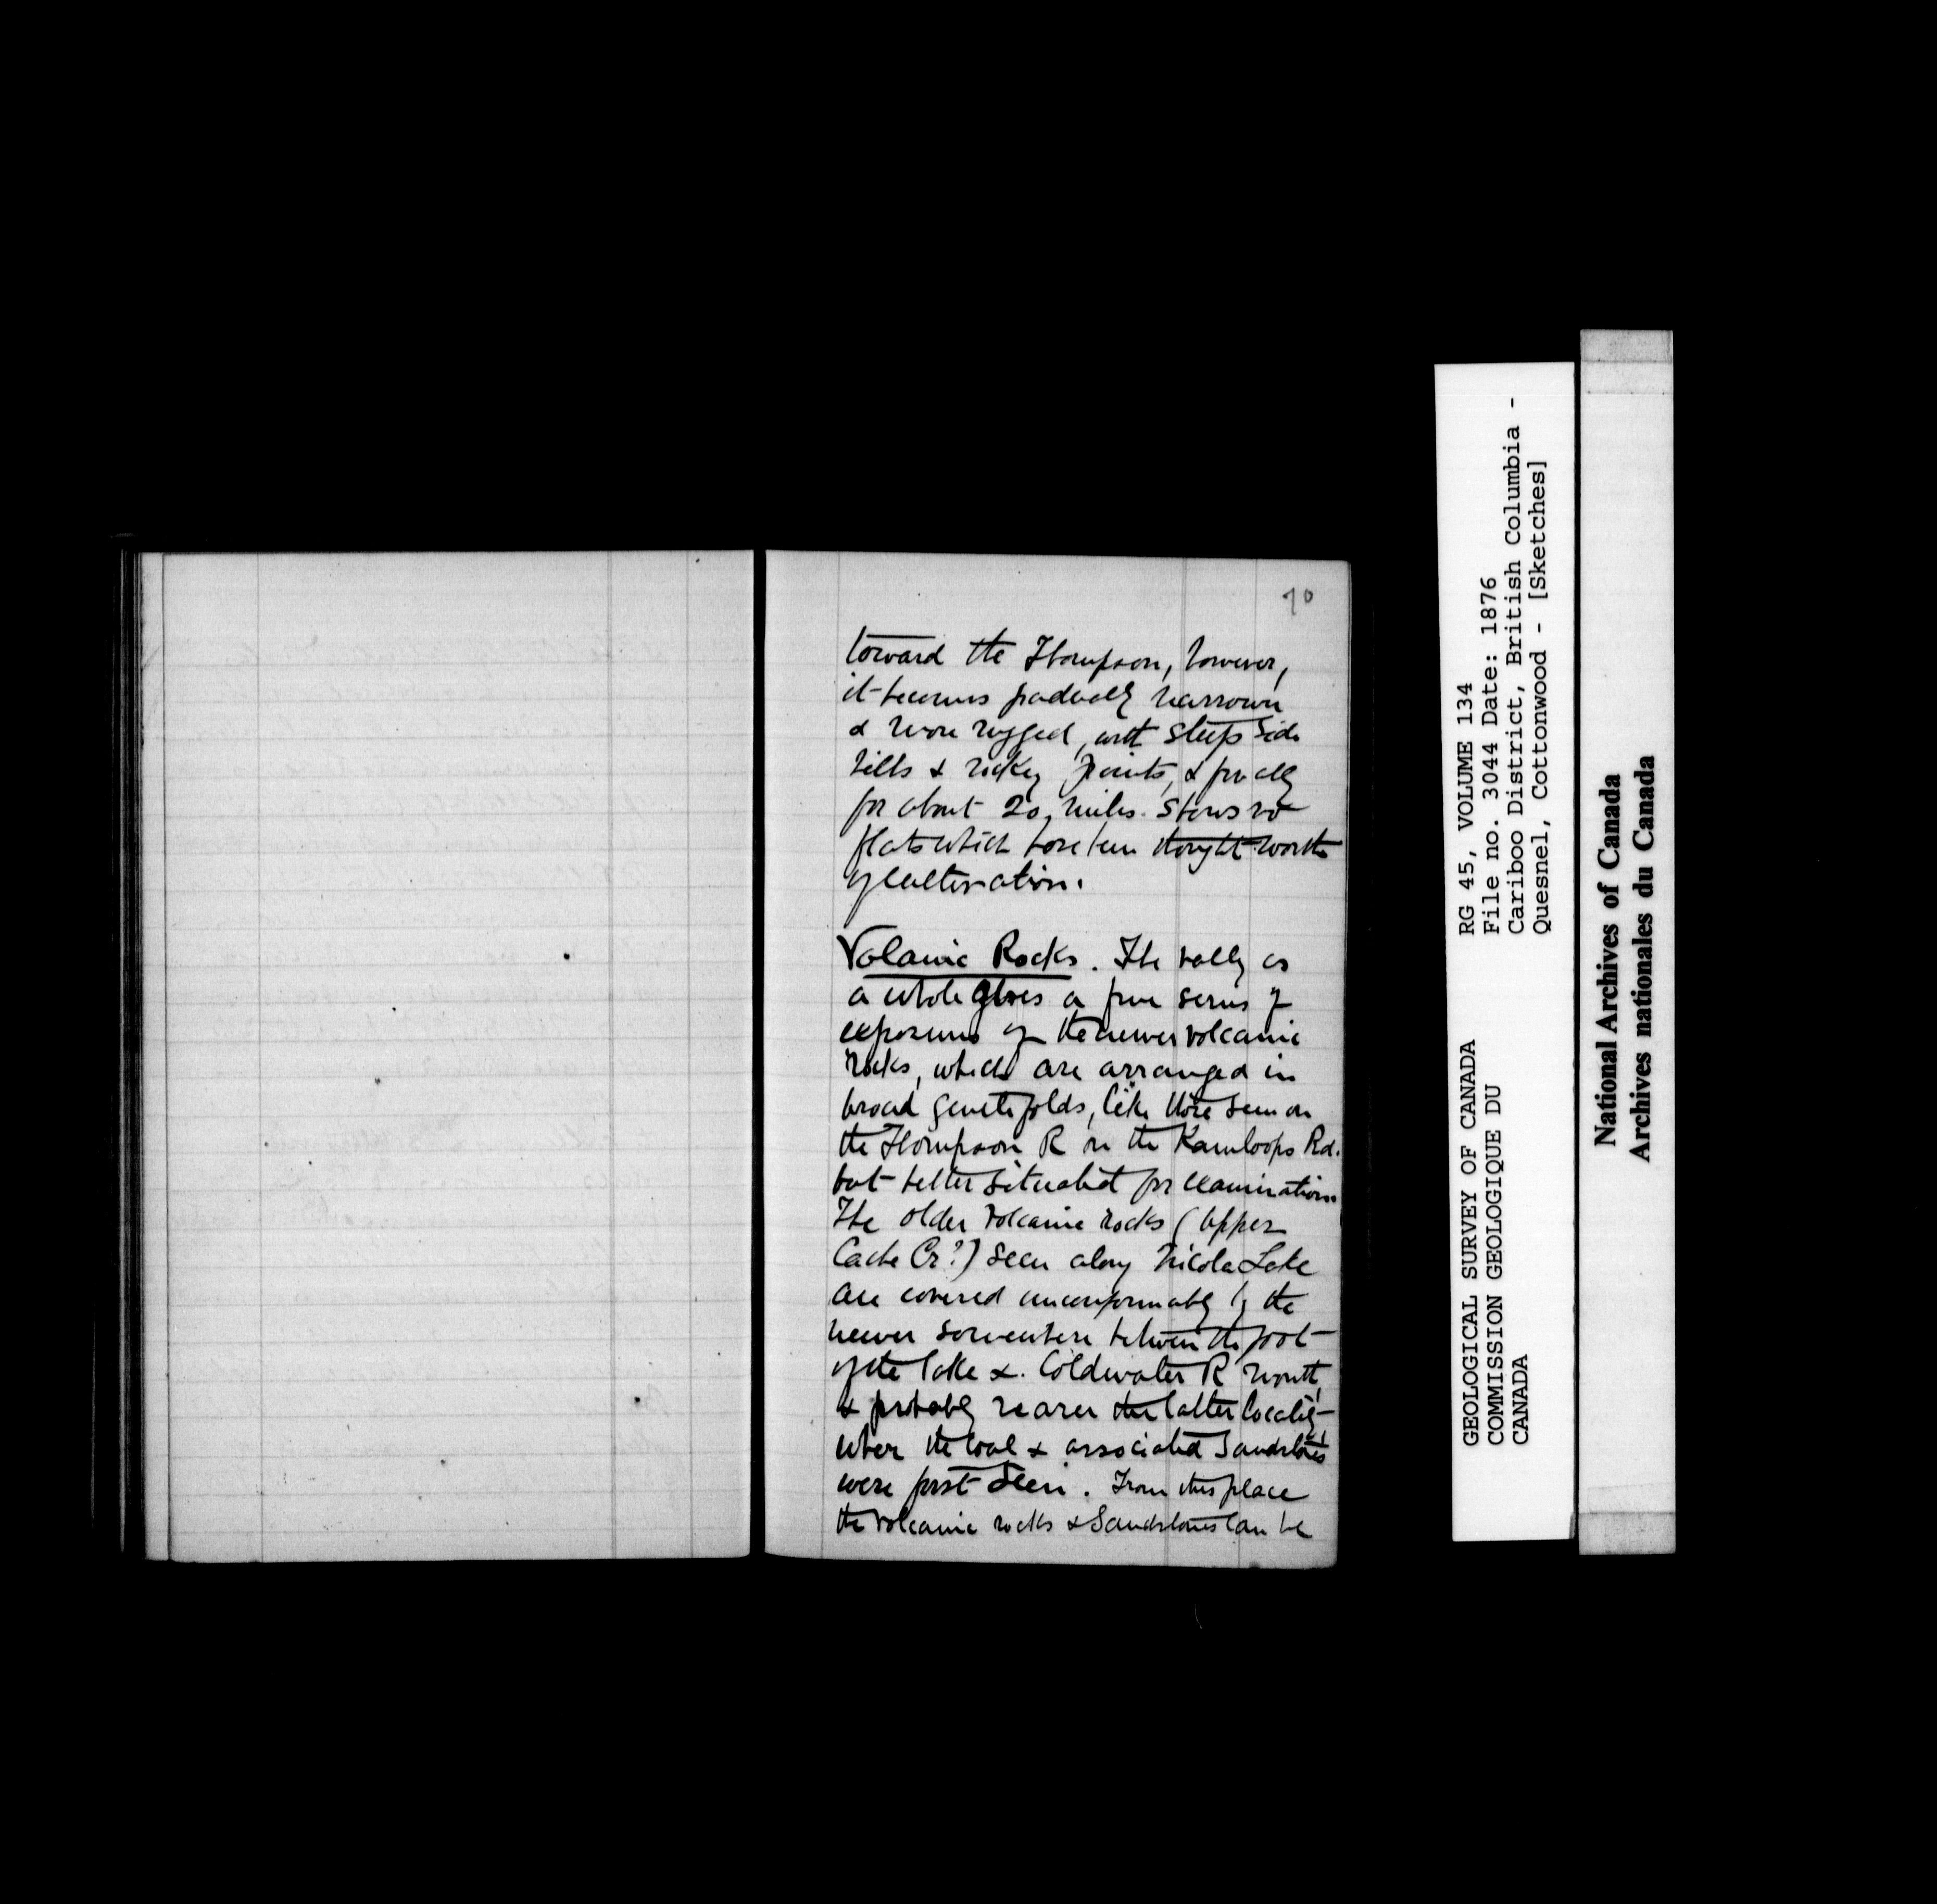 70
toward the Thompson, however,
it becomes gradually narrower
& more rugged, with steep side
hills & rocky points, & finally
for about 20 miles shows no
flats which have been thought worth
of cultivation.
Volcanic Rocks. The valley as
a whole gives a fine series of
exposures of the newer volcanic
rocks, which are arranged in
broad gentle folds, like those seen on
the Thompson R on the Kamloops Rd.
but better situated for examination.
The older volcanic rocks (Upper
Cache Cr?) seen along Nicola Lake
are covered unconformably by the
newer somewhere between the foot
of the lake & Coldwater R mouth,
& probably nearer the latter locality
where the coal & associated Sandstones
were first seen. From this place
the volcanic rocks & Sandstones can be
GEOLOGICAL SURVEY OF CANADA
COMMISSION GEOLOGIQUE DU
CANADA
RG 45, VOLUME 134
File no. 3044 Date: 1876
Cariboo District, British Columbia -
Quesnel, Cottonwood - [Sketches]
National Archives of Canada
Archives nationales du Canada